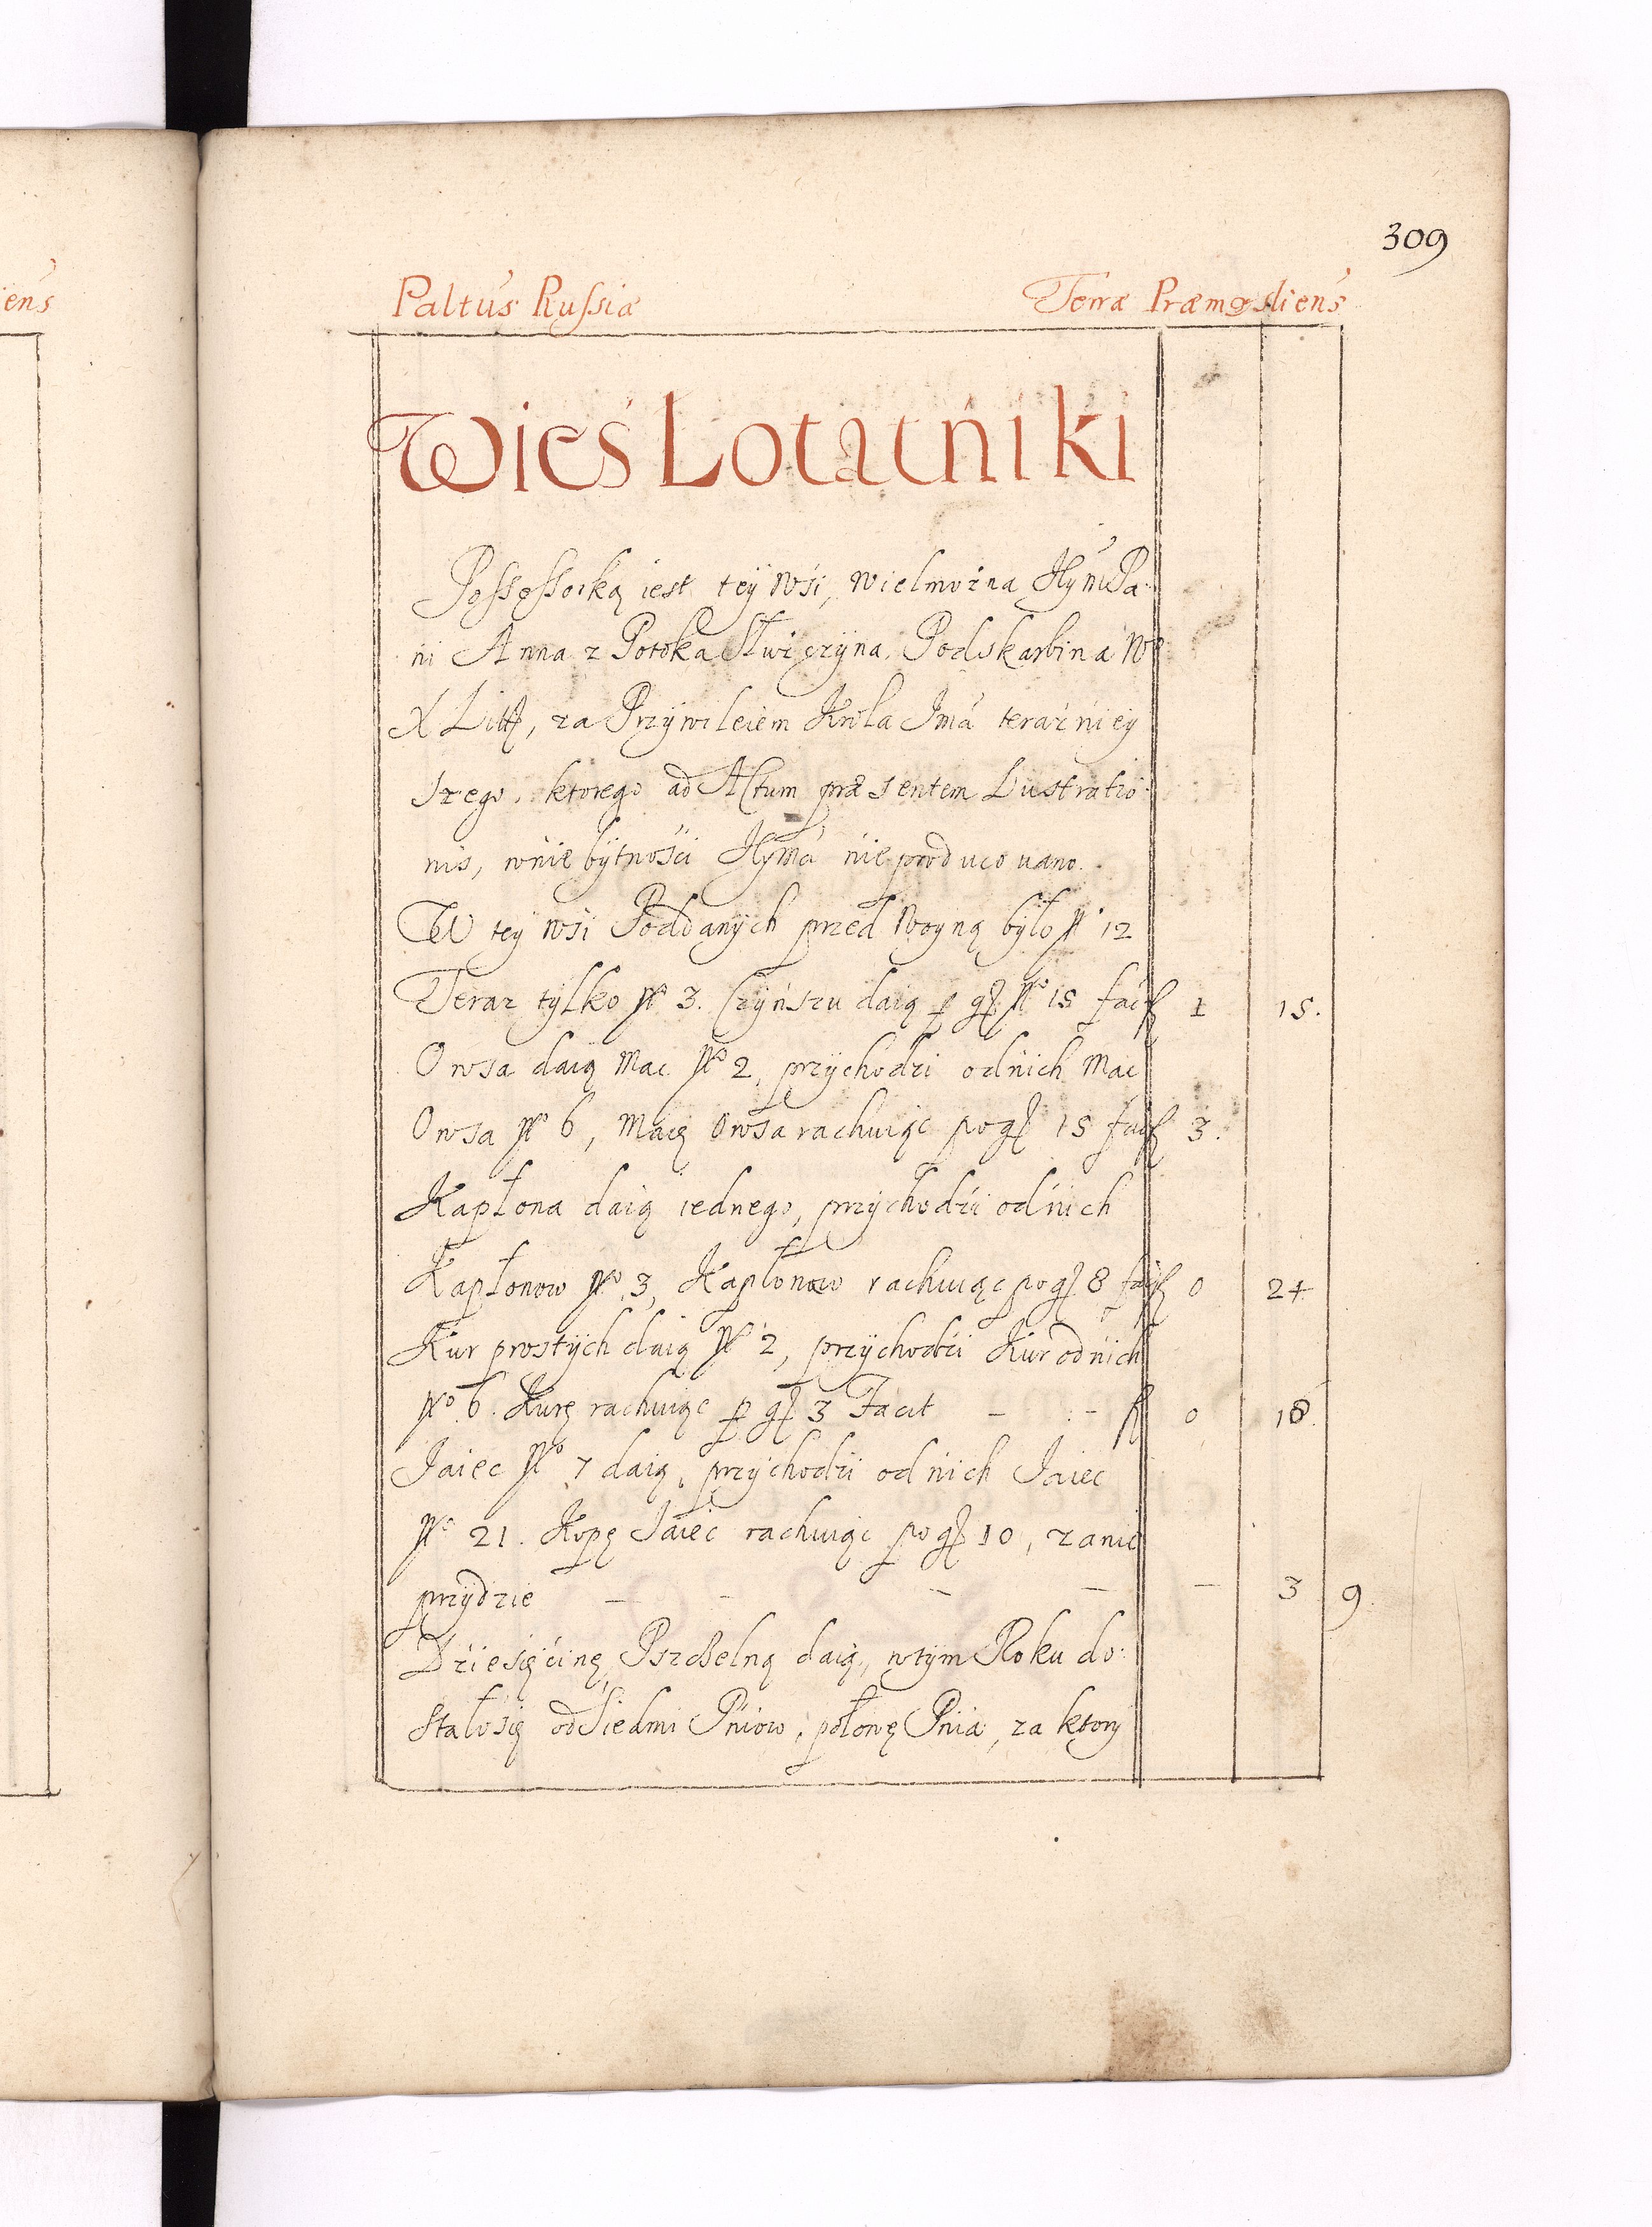 309
iens
Paltus Russiæ Terræ Præmysliens
Wieś Lotatniki
Possessorką iest tey Wsi, Wielmożna Pa
ni Anna z Potoka Podskarbina W
X Litt, za Przywileiem Krola Jmći teraźniey
szego, ktorego ad Actum præsentem Lustratio
nis, w niebytności Jeymći nie producowano.
W tey wsi Poddanych przed Woyną było No 12
Teraz tylko No 3. Czynszu daią p gr No 15 facit f 1 15.
Owsa daią Mac No 2, przychodzi od nich Mac
Owsa No 6, Macę Owsa rachuiąc po gr 15 facit f 3.
Kapłona daią iednego, przychodzi od nich
Kapłonow No 3, Kapłonow rachuiąc po gr 8 facit f 0 24
Kur prostych daią No 2, przychodzi Kur od nich
No 6. Kurę rachuiąc p gr 3 Facit - - f 0 18.
Jaiec No 7 daią, przychodzi od nich Jaiec
No 21. Kopę Jaiec rachuiąc po gr 10, za nie
przydzie - - - - - 3 9.
Dziesięcinę Pszczelną daią, w tym Roku do
stało się od Siedmi Pniow, połowę Pnia, za ktory